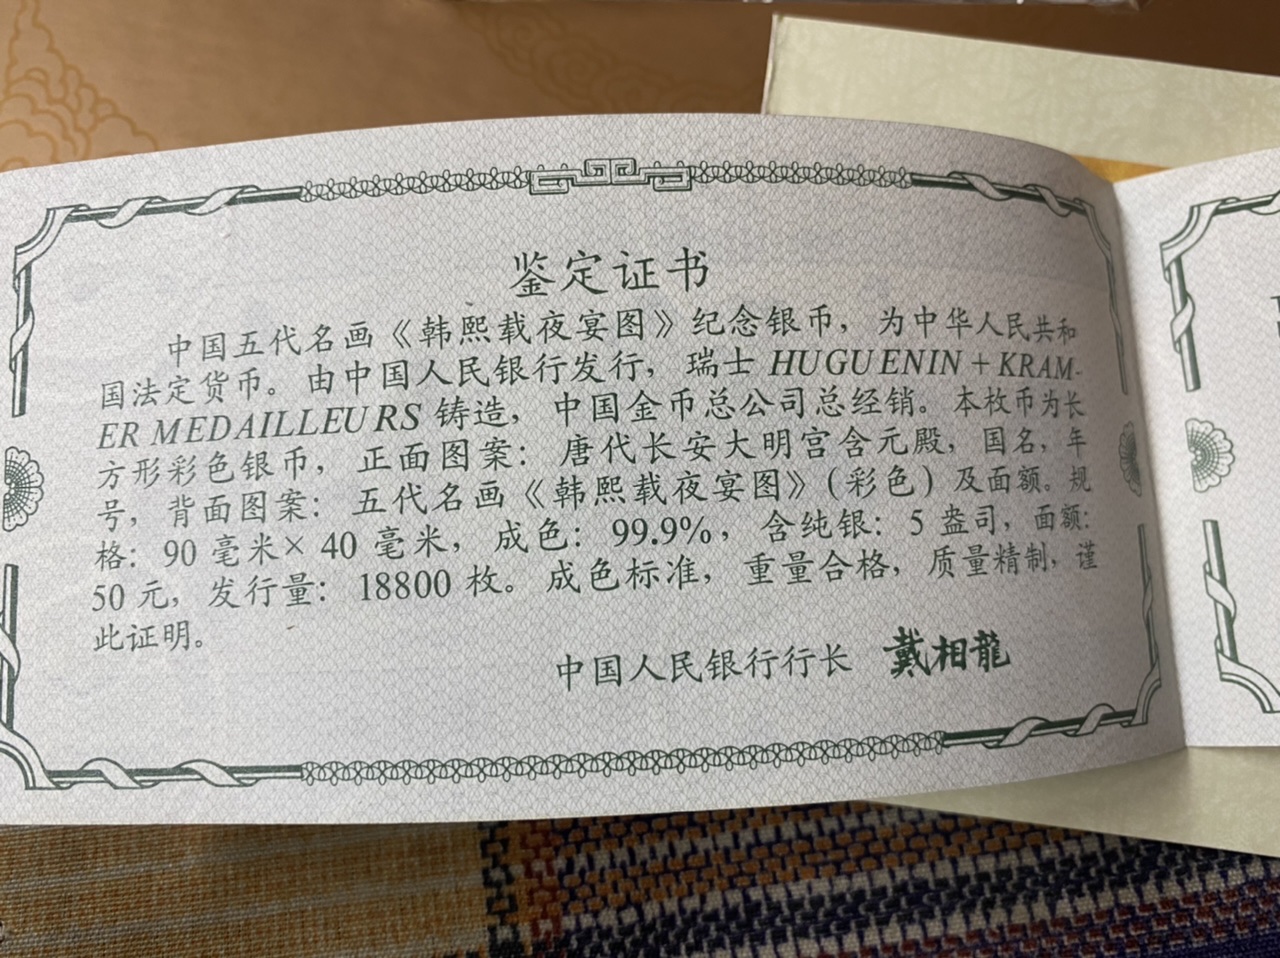 鉴定证书
中国五代名画《韩熙载夜宴图》纪念银币，为中华人民共和
国法定货币。由中国人民银行发行，瑞士 HUGUENIN + KRAM-
ER MEDAILLEURS 铸造，中国金币总公司总经销。本枚币为长
方形彩色银币，正面图案：唐代长安大明宫含元殿，国名，年
号，背面图案：五代名画《韩熙载夜宴图》（彩色）及面额。规
格：90 毫米× 40 毫米，成色：99.9%，含纯银：5 盎司，面额：
50 元，发行量：18800 枚。成色标准，重量合格，质量精制，谨
此证明。
中国人民银行行长 戴相龍